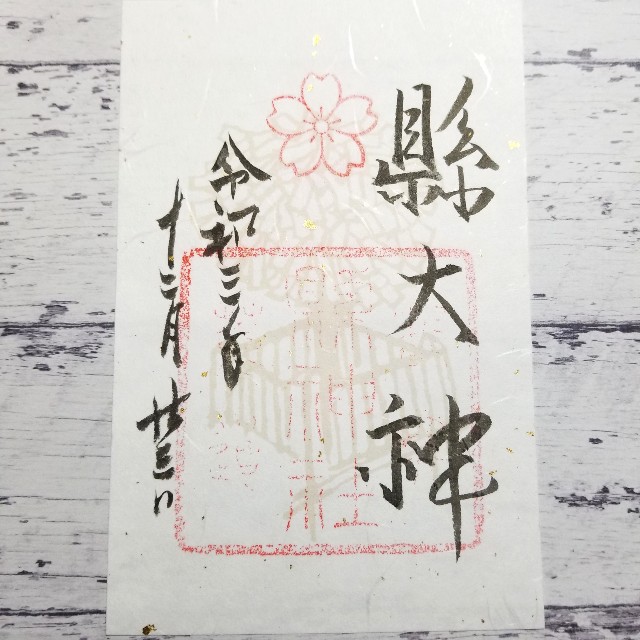 縣大神
令和三年
十二月廿三日